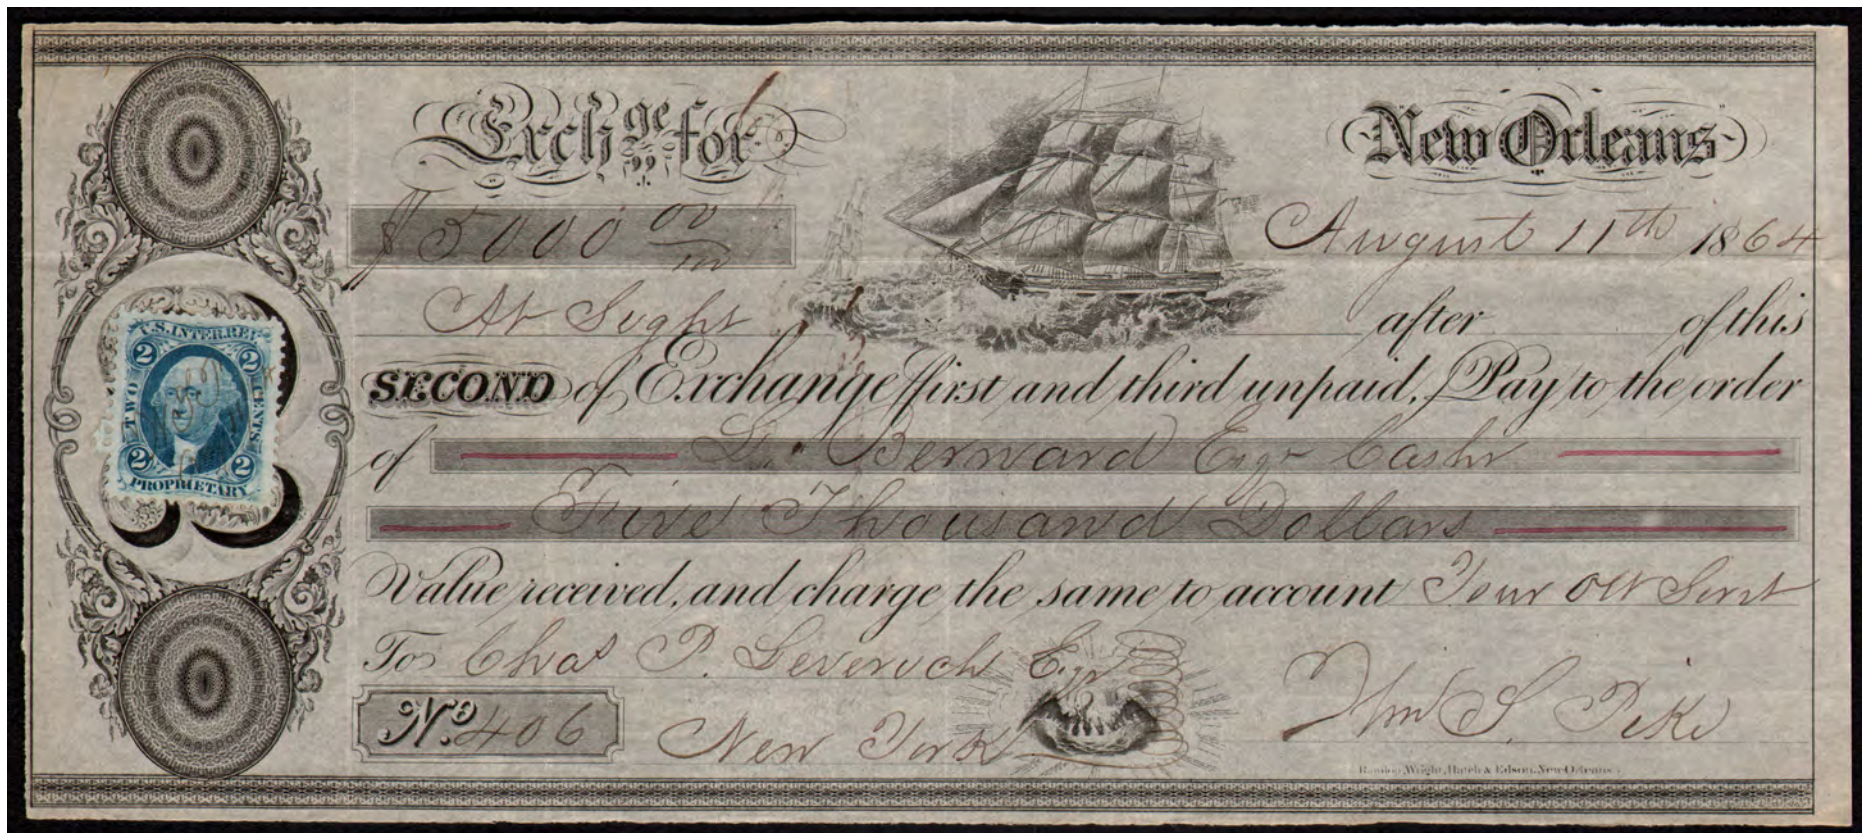 Exchge for
New Orleans
$5000 00/100
August 11th 1864
At Sight after of this
SECOND of Exchange first and third unpaid, Pay to the order
of L. Bernard Esqr Cashr
Five Thousand Dollars
Value received, and charge the same to account Your Obt Servt
To Chas P. Leverich Esqr
Wm S. Pike
No. 406
New York
Rawdon, Wright, Hatch & Edson, New Orleans
U.S. INTER. REV.
2 2
TWO CENTS
2 2
PROPRIETARY